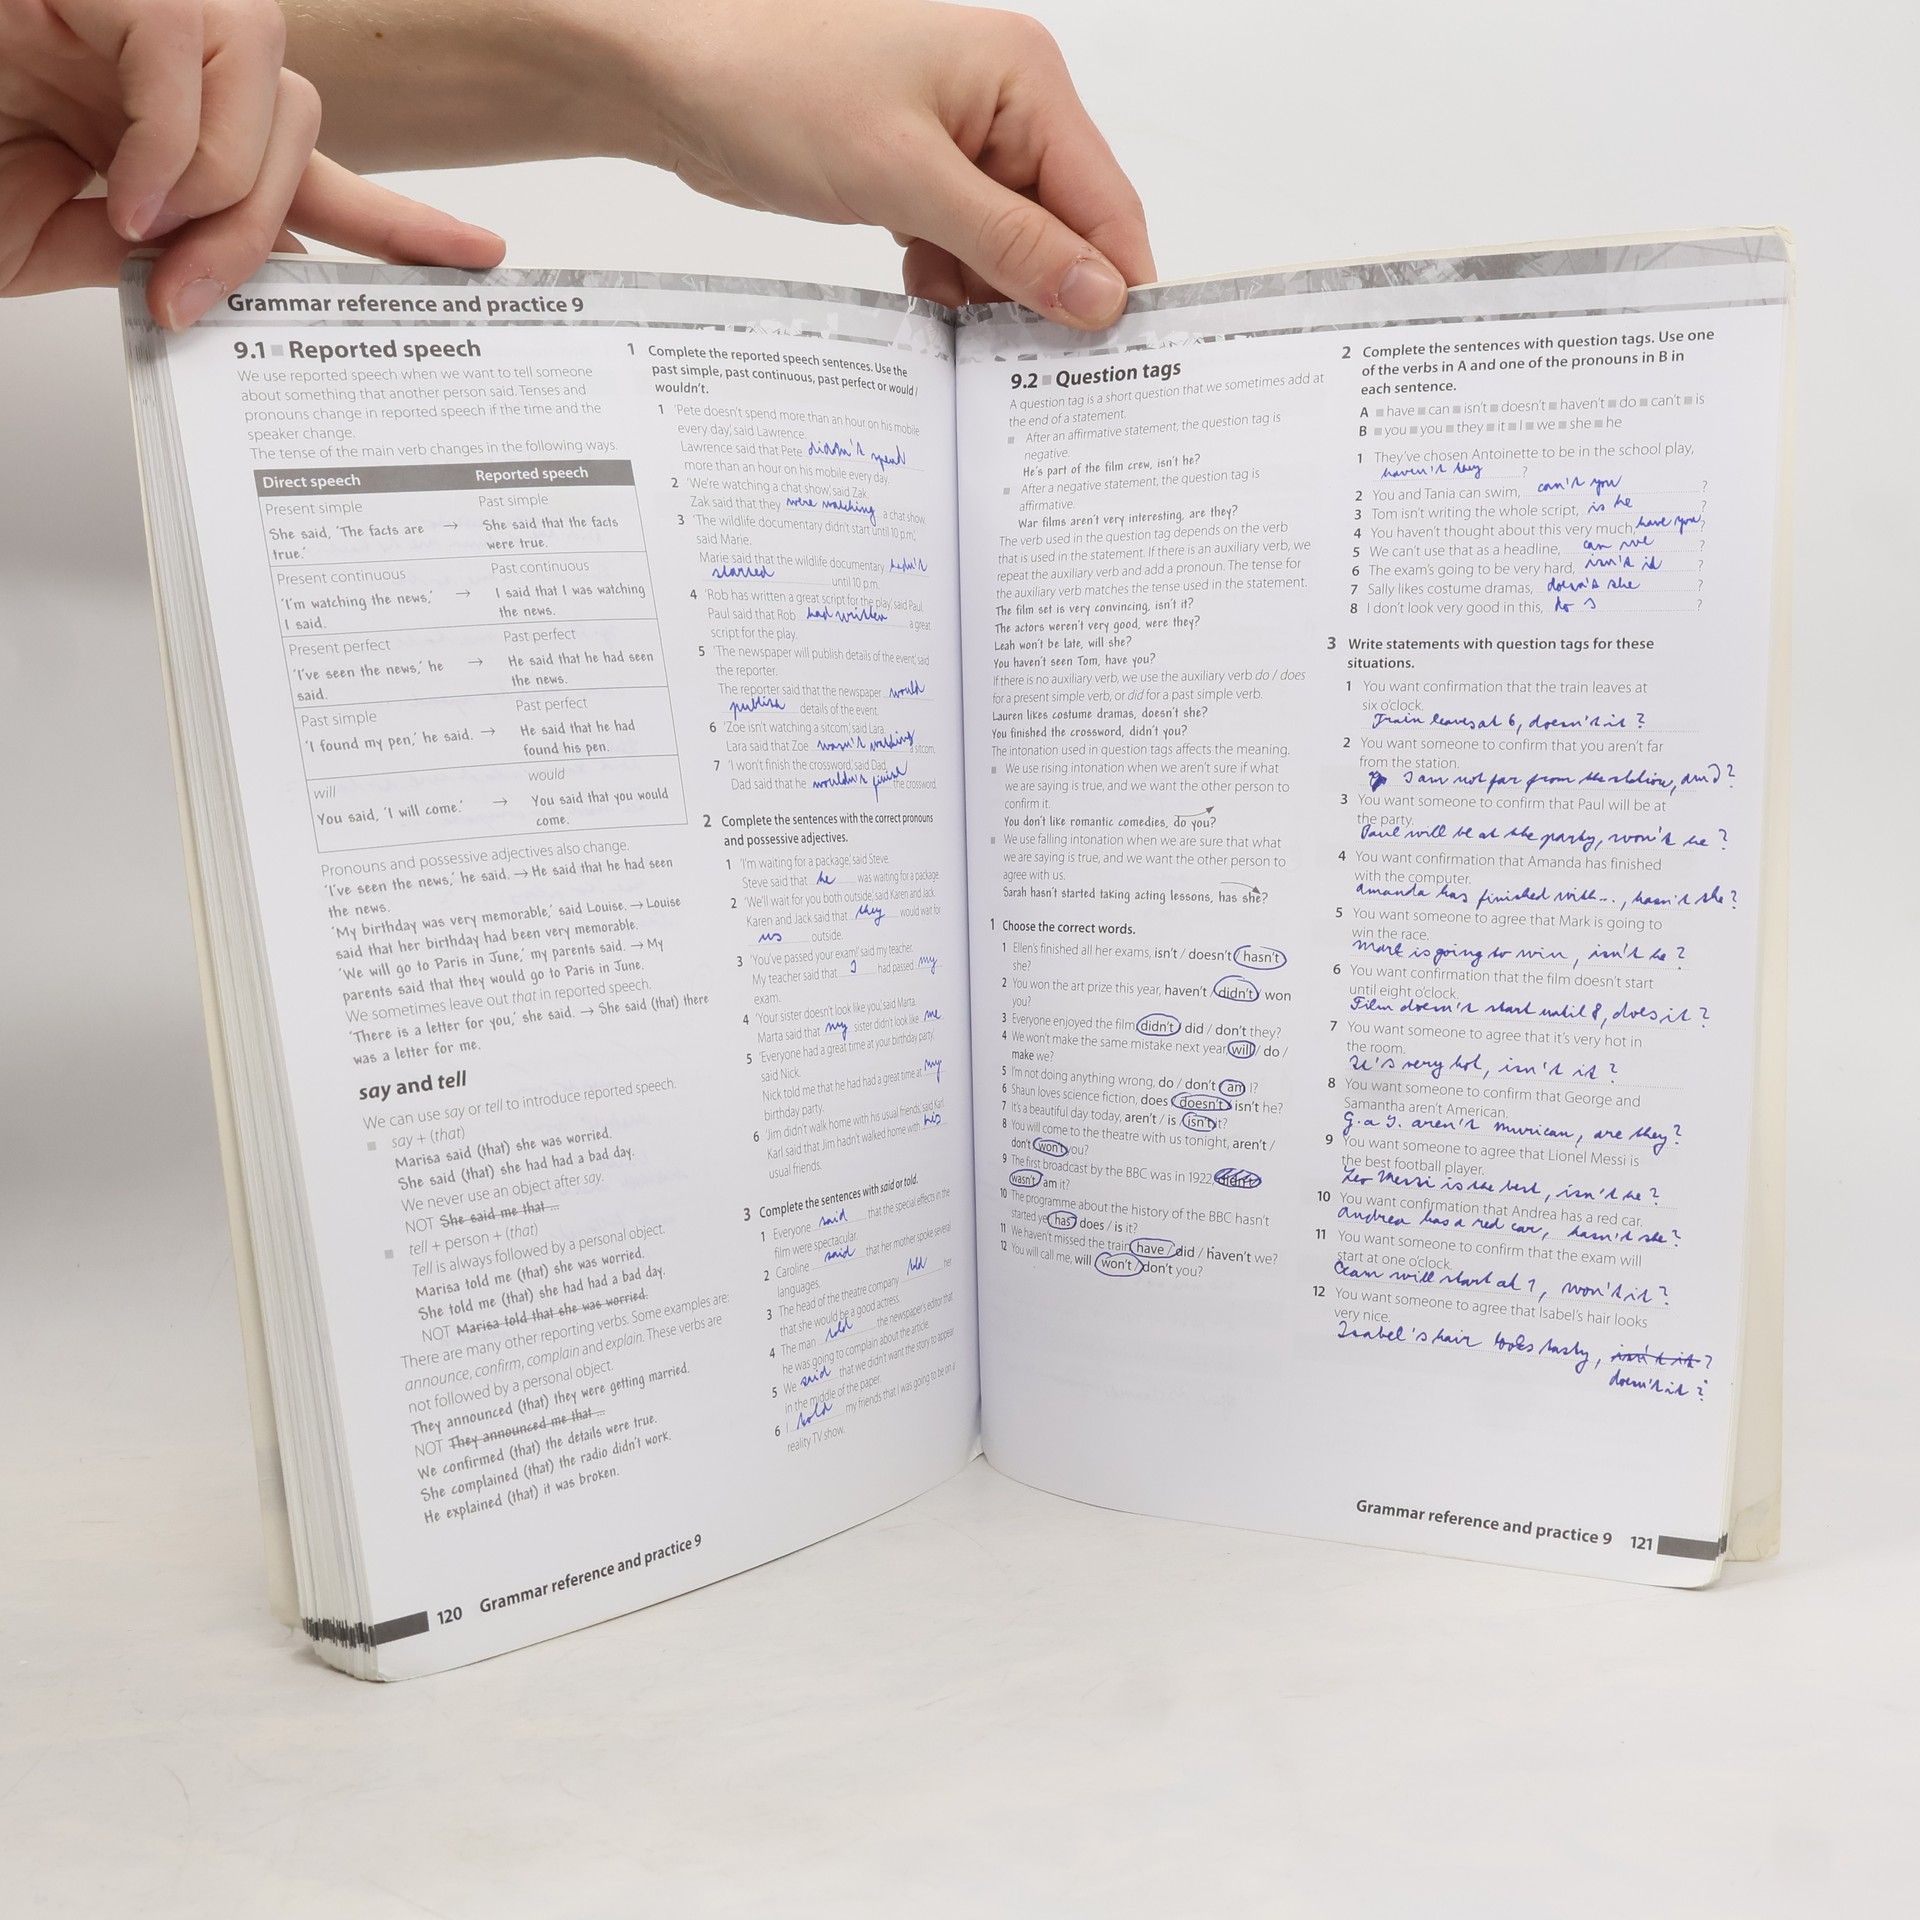 Grammar reference and practice 9
9.1 Reported speech
We use reported speech when we want to tell someone
about something that another person said. Tenses and
pronouns change in reported speech if the time and the
speaker change.
The tense of the main verb changes in the following ways.
Direct speech Reported speech
Present simple Past simple
She said, 'The facts are → She said that the facts
true.' were true.
Present continuous Past continuous
'I'm watching the news,' → I said that I was watching
I said. the news.
Present perfect Past perfect
'I've seen the news,' he → He said that he had seen
said. the news.
Past simple Past perfect
'I found my pen,' he said. → He said that he had
found his pen.
will would
You said, 'I will come.' → You said that you would
come.
Pronouns and possessive adjectives also change.
'I've seen the news,' he said. → He said that he had seen
the news.
'My birthday was very memorable,' said Louise. → Louise
said that her birthday had been very memorable.
'We will go to Paris in June,' my parents said. → My
parents said that they would go to Paris in June.
We sometimes leave out that in reported speech.
'There is a letter for you,' she said. → She said (that) there
was a letter for me.
say and tell
We can use say or tell to introduce reported speech.
say + (that)
Marisa said (that) she was worried.
She said (that) she had had a bad day.
We never use an object after say.
NOT She said me that ...
tell + person + (that)
Tell is always followed by a personal object.
Marisa told me (that) she was worried.
She told me (that) she had had a bad day.
NOT Marisa told that she was worried.
There are many other reporting verbs. Some examples are:
announce, confirm, complain and explain. These verbs are
not followed by a personal object.
They announced (that) they were getting married.
NOT They announced me that ...
We confirmed (that) the details were true.
She complained (that) the radio didn't work.
He explained (that) it was broken.
120 Grammar reference and practice 9
1 Complete the reported speech sentences. Use the
past simple, past continuous, past perfect or would /
wouldn't.
1 'Pete doesn't spend more than an hour on his mobile
every day,' said Lawrence.
Lawrence said that Pete didn't spend
more than an hour on his mobile every day.
2 'We're watching a chat show,' said Zak.
Zak said that they were watching a chat show.
3 'The wildlife documentary didn't start until 10 p.m.',
said Marie.
Marie said that the wildlife documentary hadn't
started until 10 p.m.
4 'Rob has written a great script for the play,' said Paul.
Paul said that Rob had written a great
script for the play.
5 'The newspaper will publish details of the event,' said
the reporter.
The reporter said that the newspaper would
publish details of the event.
6 'Zoe isn't watching a sitcom,' said Lara.
Lara said that Zoe wasn't watching a sitcom.
7 'I won't finish the crossword,' said Dad.
Dad said that he wouldn't finish the crossword.
2 Complete the sentences with the correct pronouns
and possessive adjectives.
1 'I'm waiting for a package,' said Steve.
Steve said that he was waiting for a package.
2 'We'll wait for you both outside,' said Karen and Jack.
Karen and Jack said that they would wait for
us outside.
3 'You've passed your exam!' said my teacher.
My teacher said that I had passed my
exam.
4 'Your sister doesn't look like you,' said Marta.
Marta said that my sister didn't look like me
5 'Everyone had a great time at your birthday party,'
said Nick.
Nick told me that he had had a great time at my
birthday party.
6 'Jim didn't walk home with his usual friends,' said Karl.
Karl said that Jim hadn't walked home with his
usual friends.
3 Complete the sentences with said or told.
1 Everyone said that the special effects in the
film were spectacular.
2 Caroline said that her mother spoke several
languages.
3 The head of the theatre company told her
that she would be a good actress.
4 The man told the newspaper's editor that
he was going to complain about the article.
5 We said that we didn't want the story to appear
in the middle of the paper.
6 I told my friends that I was going to be on a
reality TV show.
9.2 Question tags
A question tag is a short question that we sometimes add at
the end of a statement.
After an affirmative statement, the question tag is
negative.
He's part of the film crew, isn't he?
After a negative statement, the question tag is
affirmative.
War films aren't very interesting, are they?
The verb used in the question tag depends on the verb
that is used in the statement. If there is an auxiliary verb, we
repeat the auxiliary verb and add a pronoun. The tense for
the auxiliary verb matches the tense used in the statement.
The film set is very convincing, isn't it?
The actors weren't very good, were they?
Leah won't be late, will she?
You haven't seen Tom, have you?
If there is no auxiliary verb, we use the auxiliary verb do / does
for a present simple verb, or did for a past simple verb.
Lauren likes costume dramas, doesn't she?
You finished the crossword, didn't you?
The intonation used in question tags affects the meaning.
We use rising intonation when we aren't sure if what
we are saying is true, and we want the other person to
confirm it.
You don't like romantic comedies, do you?
We use falling intonation when we are sure that what
we are saying is true, and we want the other person to
agree with us.
Sarah hasn't started taking acting lessons, has she?
1 Choose the correct words.
1 Ellen's finished all her exams, isn't / doesn't / hasn't
she?
2 You won the art prize this year, haven't / didn't / won
you?
3 Everyone enjoyed the film, didn't / did / don't they?
4 We won't make the same mistake next year, will / do /
make we?
5 I'm not doing anything wrong, do / don't / am I?
6 Shaun loves science fiction, does / doesn't / isn't he?
7 It's a beautiful day today, aren't / is / isn't it?
8 You will come to the theatre with us tonight, aren't /
don't / won't you?
9 The first broadcast by the BBC was in 1922, didn't /
wasn't / am it?
10 The programme about the history of the BBC hasn't
started yet, has / does / is it?
11 We haven't missed the train, have / did / haven't we?
12 You will call me, will / won't / don't you?
2 Complete the sentences with question tags. Use one
of the verbs in A and one of the pronouns in B in
each sentence.
A have can isn't doesn't haven't do can't is
B you you they it I we she he
1 They've chosen Antoinette to be in the school play,
haven't they ?
2 You and Tania can swim, can't you ?
3 Tom isn't writing the whole script, is he ?
4 You haven't thought about this very much, have you ?
5 We can't use that as a headline, can we ?
6 The exam's going to be very hard, isn't it ?
7 Sally likes costume dramas, doesn't she ?
8 I don't look very good in this, do I ?
3 Write statements with question tags for these
situations.
1 You want confirmation that the train leaves at
six o'clock.
Train leaves at 6, doesn't it?
2 You want someone to confirm that you aren't far
from the station.
I am not far from the station, am I?
3 You want someone to confirm that Paul will be at
the party.
Paul will be at the party, won't he?
4 You want confirmation that Amanda has finished
with the computer.
Amanda has finished with..., hasn't she?
5 You want someone to agree that Mark is going to
win the race.
Mark is going to win, isn't he?
6 You want confirmation that the film doesn't start
until eight o'clock.
Film doesn't start until 8, does it?
7 You want someone to agree that it's very hot in
the room.
It's very hot, isn't it?
8 You want someone to confirm that George and
Samantha aren't American.
G. a S. aren't murican, are they?
9 You want someone to agree that Lionel Messi is
the best football player.
Leo Messi is the best, isn't he?
10 You want confirmation that Andrea has a red car.
Andrea has a red car, hasn't she?
11 You want someone to confirm that the exam will
start at one o'clock.
Exam will start at 1, won't it?
12 You want someone to agree that Isabel's hair looks
very nice.
Isabel's hair looks tasty, isn't it?
doesn't it?
Grammar reference and practice 9 121